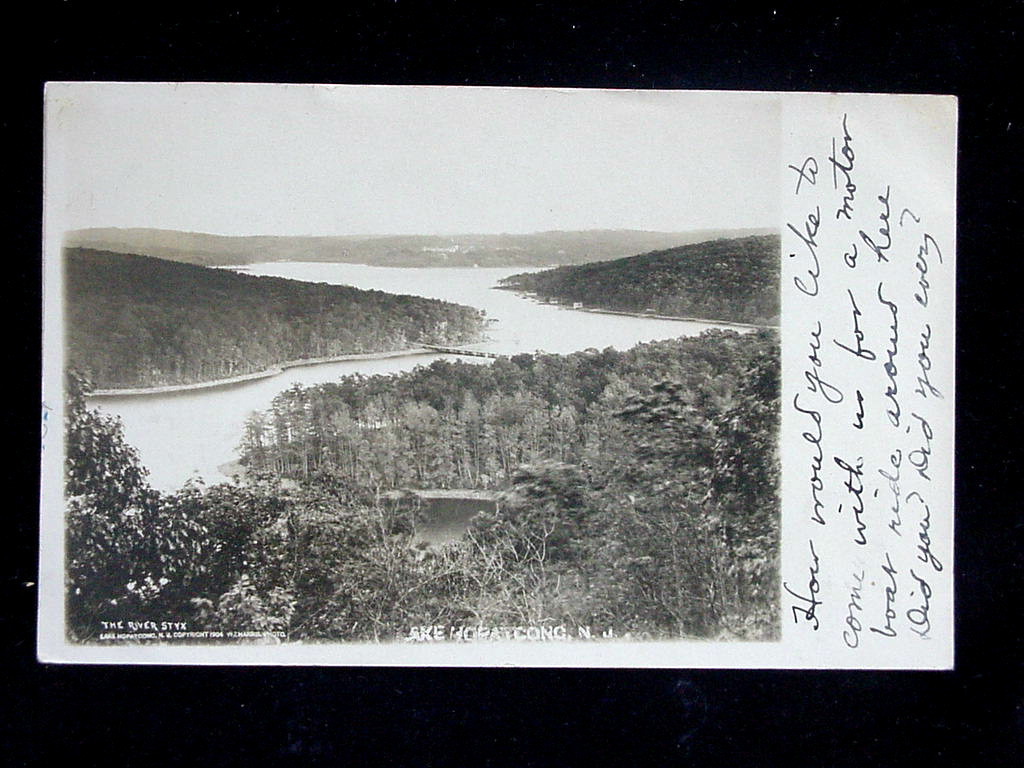 THE RIVER STYX
LAKE HOPATCONG, N. J. COPYRIGHT 1904 W.J. HARRIS, PHOTO.
AKE HOPATCONG, N. J.
How would you like to
come with us for a motor
boat ride around here
Did you? Did you ever?